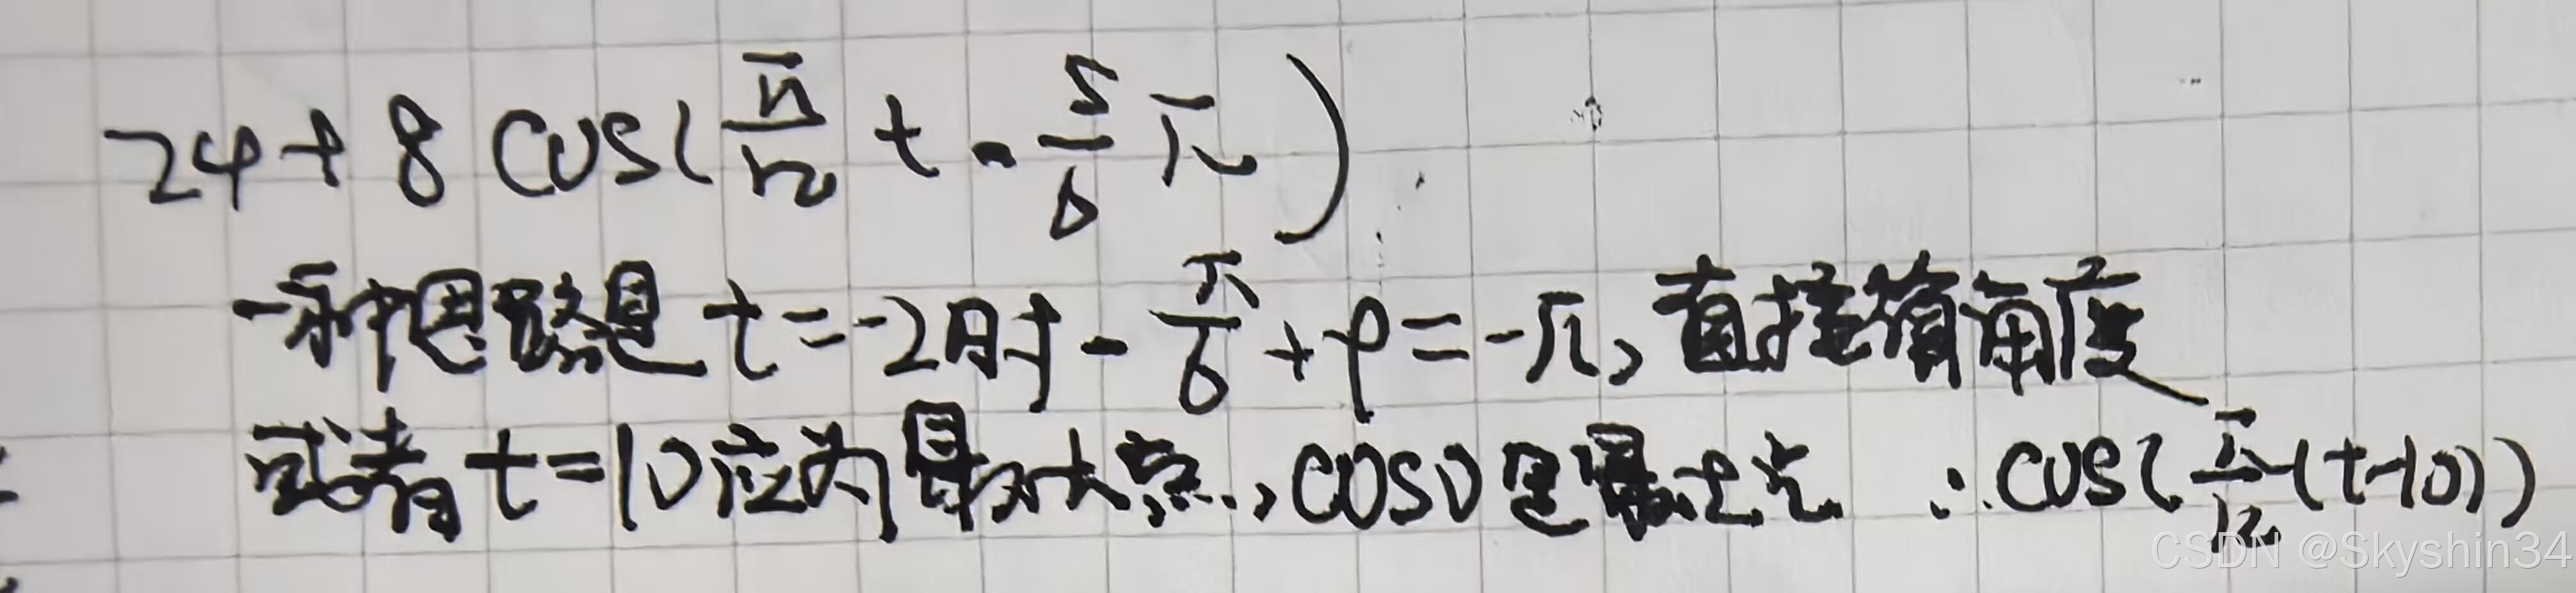 24+8 cos(π/12 t - 5/6 π)
一种思路是 t=-2时 -π/6+φ=-π, 直接算角度
或者 t=10应为最大点, cos0是最大点 ∴cos(π/12(t-10))
CSDN @Skyshin34